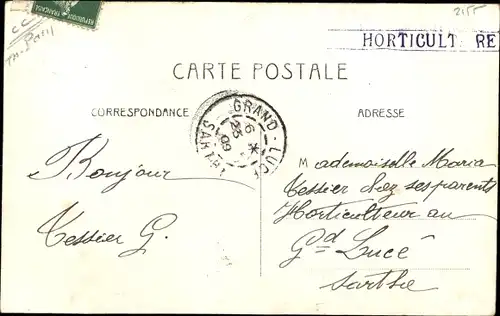 2155
HORTICULT RE
CARTE POSTALE
CORRESPONDANCE
ADRESSE
GRAND-LUCÉ
6 *
25
09
SARTHE
Bonjour
Tessier G.
Mademoiselle Maria
Tessier chez ses parents
Horticulteur au
Gd Lucé
Sarthe